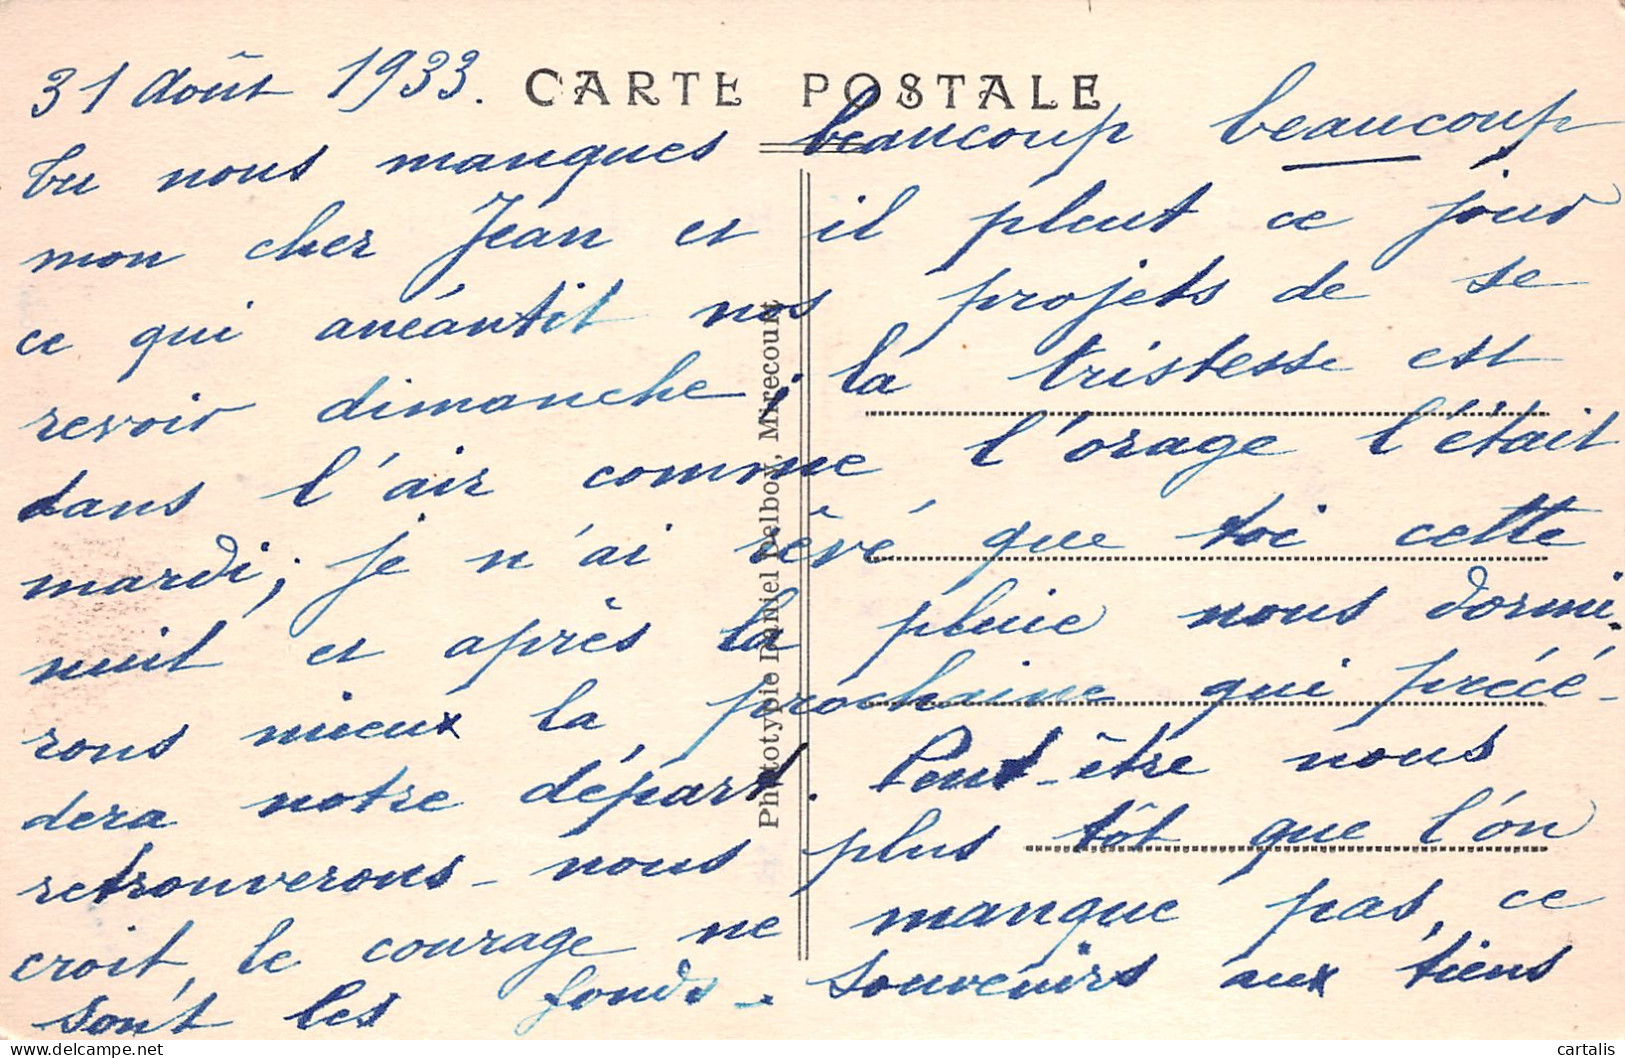 31 Août 1933. CARTE POSTALE
tu nous manques beaucoup beaucoup
mon cher Jean et il pleut ce jour
ce qui anéantit nos projets de se
revoir dimanche, la tristesse est
dans l'air comme l'orage l'était
mardi; je n'ai rêvé que toi cette
nuit et après la pluie nous dormi-
rons mieux la prochaine qui précé-
dera notre départ. Peut-être nous
retrouverons-nous plus tôt que l'on
croit, le courage ne manque pas, ce
sont les fonds. Souvenirs aux tiens
Phototypie Daniel Delboy, Mirecourt
cartalis